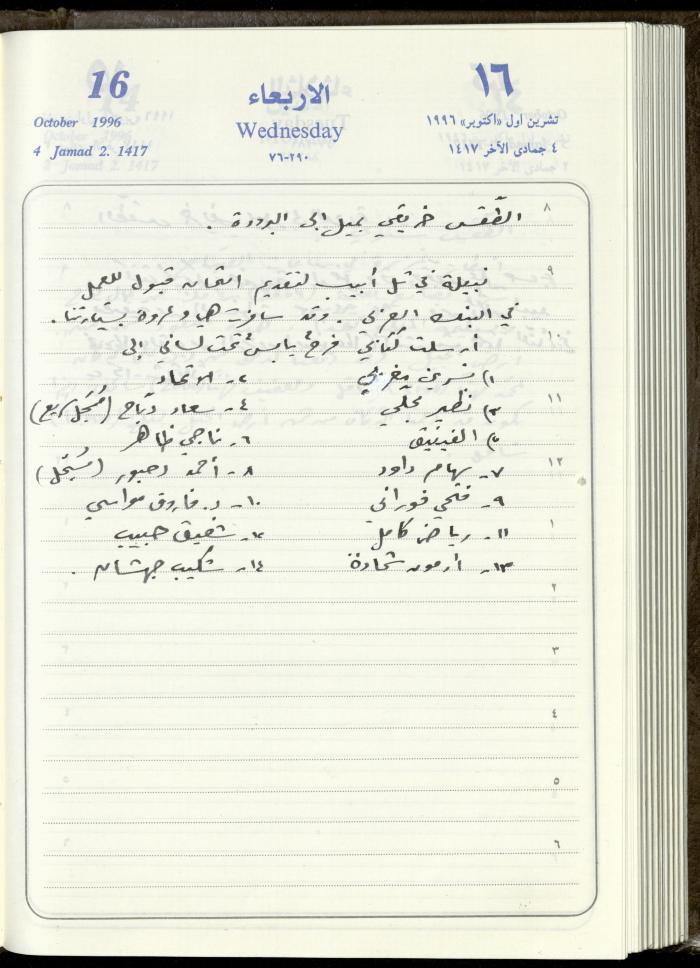 16
October 1996
4 Jamad 2. 1417
الاربعاء
Wednesday
٧٦-٢٩٠
١٦
تشرين اول «اكتوبر» ١٩٩٦
٤ جمادى الآخر ١٤١٧
الطقس خريفي يميل الى البرودة .
نبيلة في تل أبيب لتقديم امتحان قبول للعمل
في البنك العربي وقد سافرت هي وعروة بسيارتنا .
أرسلت كتابي فرح يابس تحت لساني إلى
١) نسرين مغربي ٢- الاتحاد
٣) نظير مجلي ٤- سعاد دباح (مُسَجّل سريع)
٥) الفينيق ٦- ناجي ظاهر
٧- سهام داود ٨- أحمد دحبور (مُسَجّل)
٩- فتحي فوراني ١٠- د. فاروق مواسي
١١- رياض كامل ١٢- شفيق حبيب
١٣- آرمون شحادة ١٤- شكيب جهشان .
٨
٩
١٠
١١
١٢
١
٢
٣
٤
٥
٦